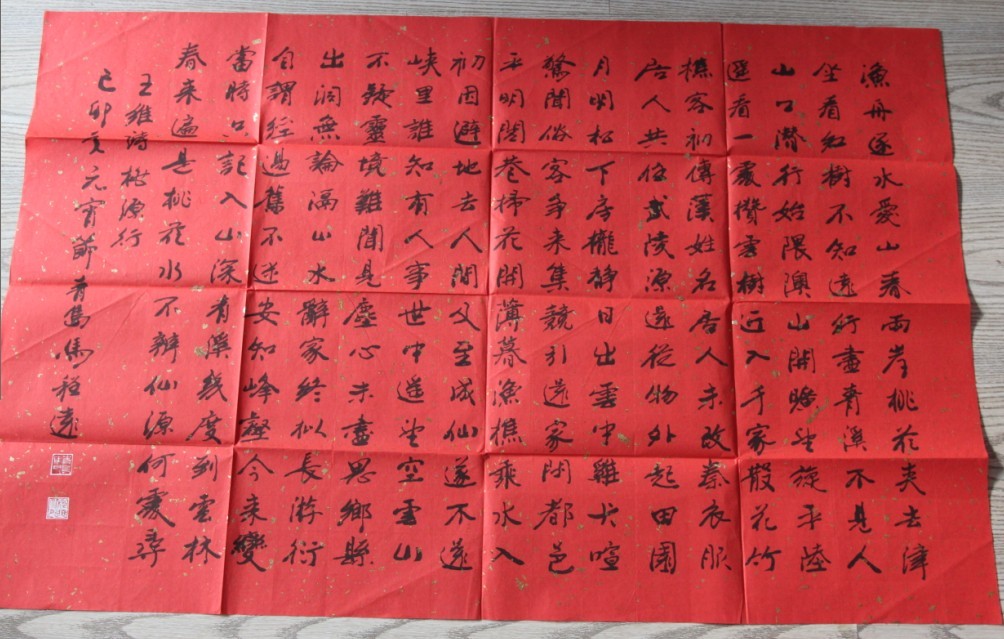 漁舟逐水愛山春兩岸桃花夾去津
坐看紅樹不知遠行盡青溪不見人
山口潛行始隈隩山開曠望旋平陸
遙看一處攢雲樹近入千家散花竹
樵客初傳漢姓名居人未改秦衣服
居人共住武陵源還從物外起田園
月明松下房櫳靜日出雲中雞犬喧
驚聞俗客爭來集競引還家問都邑
平明閭巷掃花開薄暮漁樵乘水入
初因避地去人間及至成仙遂不還
峽里誰知有人事世中遙望空雲山
不疑靈境難聞見塵心未盡思鄉縣
出洞無論隔山水辭家終擬長游衍
自謂經過舊不迷安知峰壑今來變
當時只記入山深青溪幾度到雲林
春來遍是桃花水不辨仙源何處尋
王維詩桃源行
己卯亥元宵節青島馬程遠